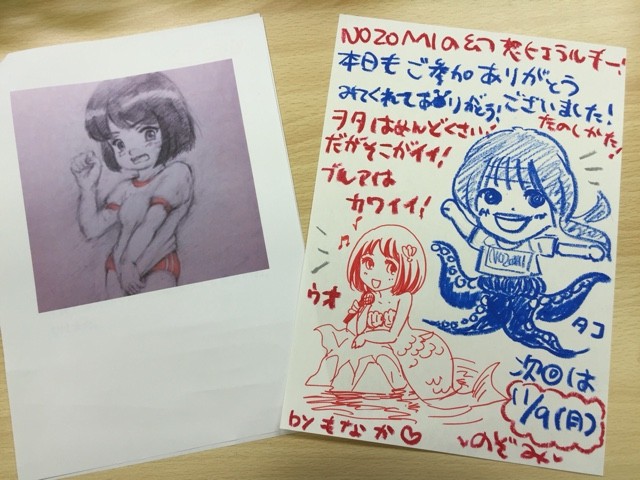 NOZOMIの幻想ヒエラルチー!
本日もご参加ありがとう
みてくれてありがとう!ございました!
たのしかた!
ヲタはめんどくさい!
だがそこがイイ!
ブルマは
カワイイ!
NOZOMI
ウオ
タコ
次回は
11/9(月)
by もなか♡
〜のぞみ〜